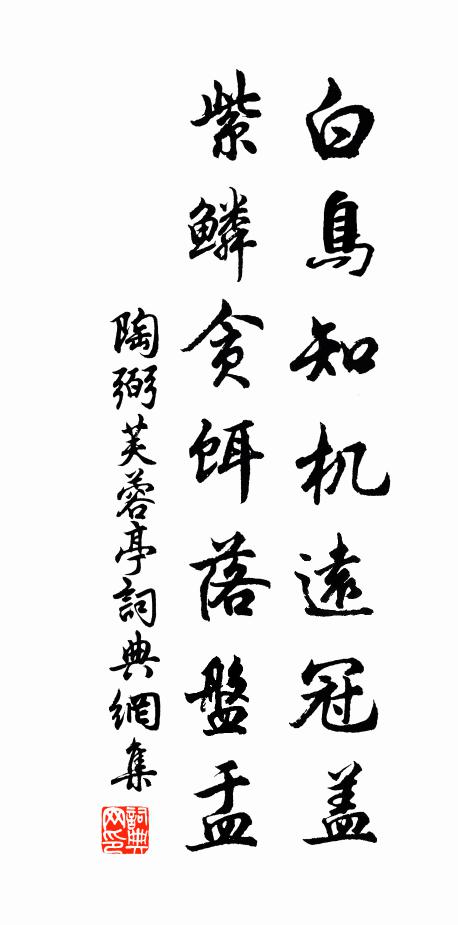 白鳥知机遠冠盖
紫鳞貪餌落盤盂
陶弼芙蓉亭詞典網集
詞典网印